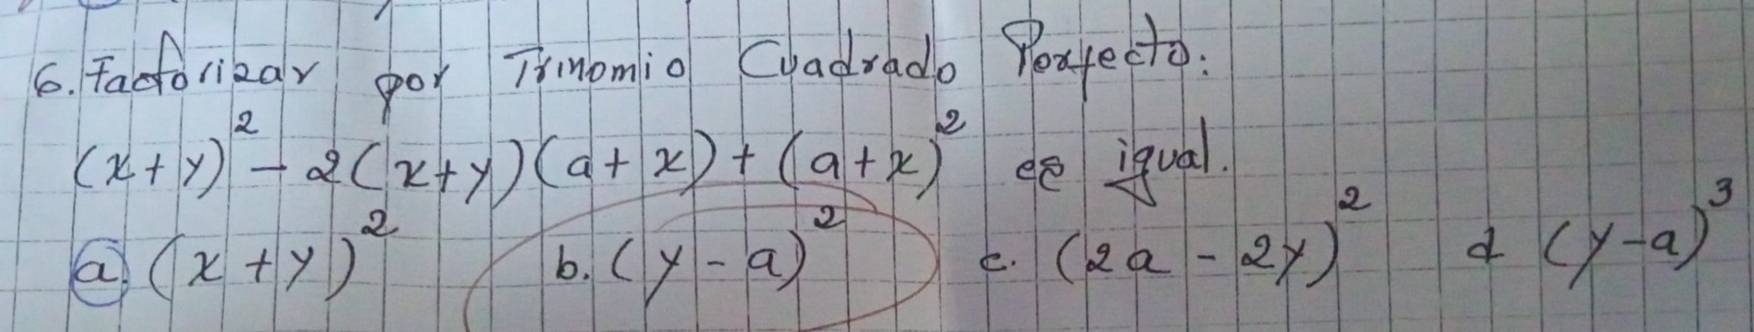 6. Factorizar por Trinomio Cuadrado Perfecto:
(x+y)² - 2(x+y)(a+x) + (a+x)² es igual.
a) (x+y)² b. (y-a)² c. (2a-2y)² d (y-a)³